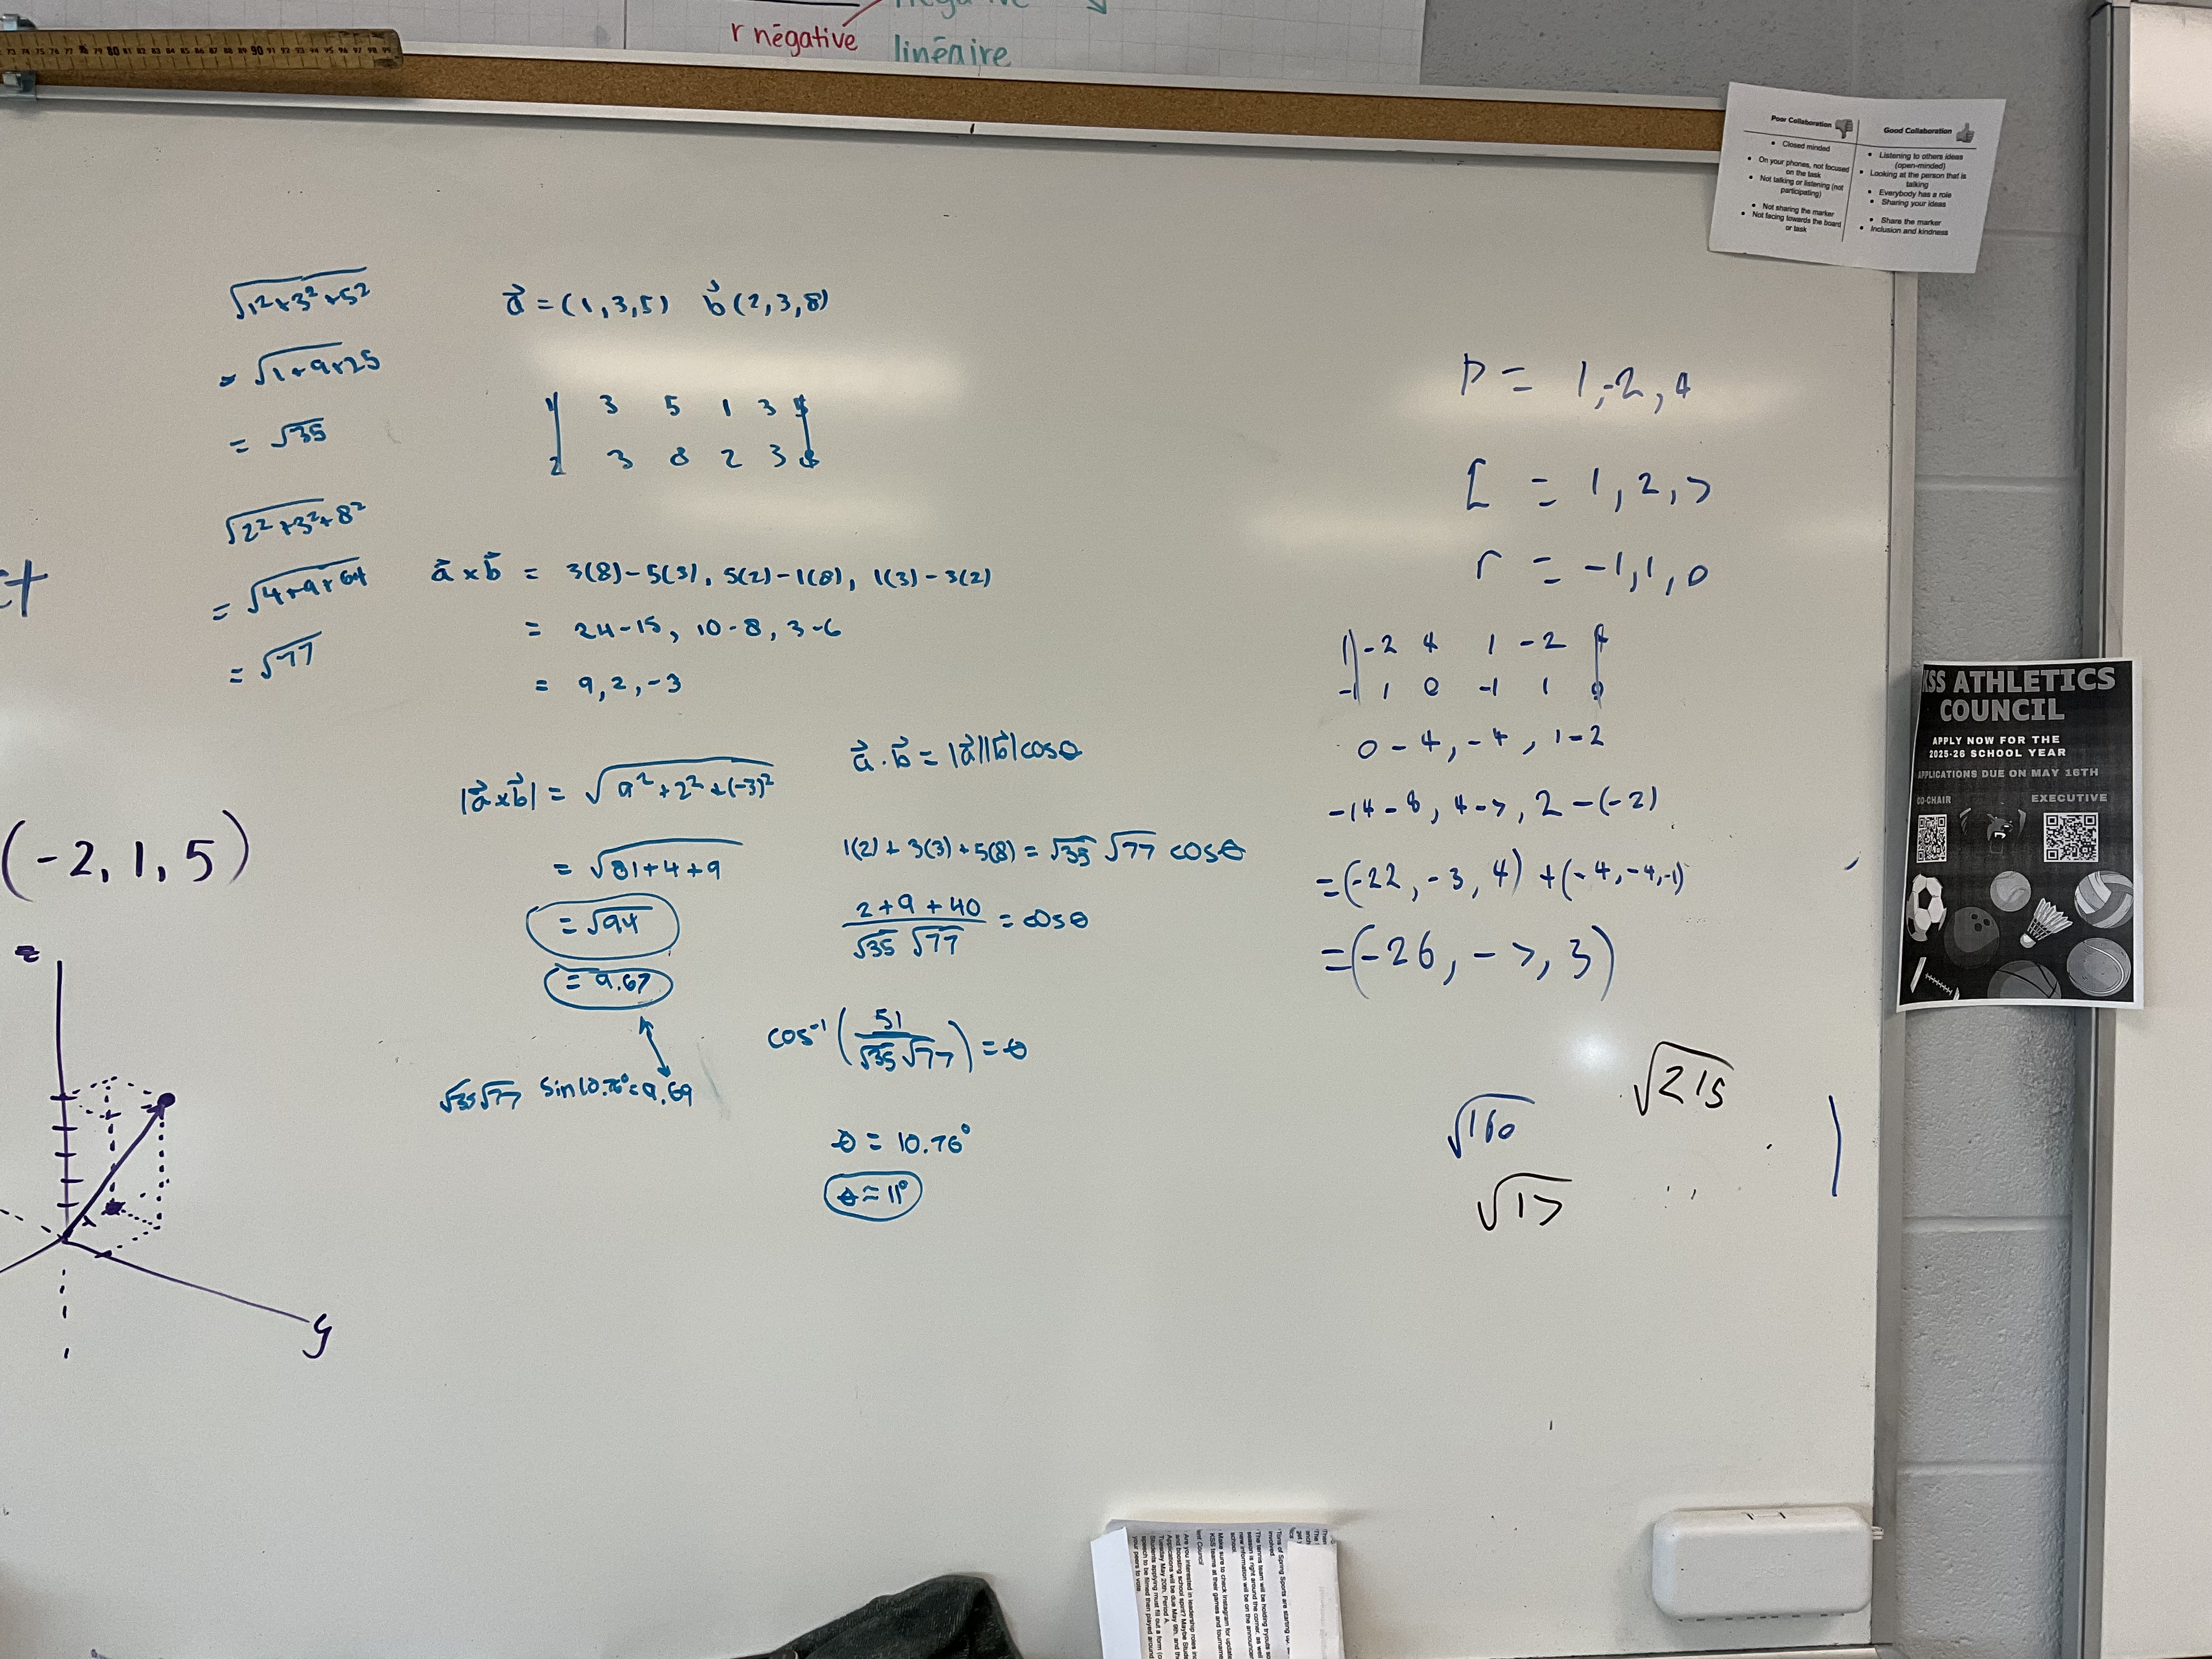 73 74 75 76 77 78 79 80 81 82 83 84 85 86 87 88 89 90 91 92 93 94 95 96 97 98 99
r négative
négative
linéaire
Poor Collaboration
• Closed minded
• On your phones, not focused on the task
• Not talking or listening (not participating)
• Not sharing the marker
• Not facing towards the board or task
Good Collaboration
• Listening to others ideas (open-minded)
• Looking at the person that is talking
• Everybody has a role
• Sharing your ideas
• Share the marker
• Inclusion and kindness
√1²+3²+5²
= √1+9+25
= √35
√2²+3²+8²
= √4+9+64
= √77
ct
(-2, 1, 5)
z
y
a⃗ = (1,3,5) b⃗ (2,3,8)
1 3 5 1 3 5
2 3 8 2 3 8
a⃗ x b⃗ = 3(8)-5(3), 5(2)-1(8), 1(3)-3(2)
= 24-15, 10-8, 3-6
= 9, 2, -3
|a⃗ x b⃗| = √9²+2²+(-3)²
= √81+4+9
= √94
= 9.67
√35√77 sin10.76°=9.69
a⃗ · b⃗ = |a⃗||b⃗|cosθ
1(2)+3(3)+5(8) = √35 √77 cosθ
2+9+40 / √35 √77 = cosθ
cos⁻¹(51/√35√77) = θ
θ = 10.76°
θ ≈ 11°
p = 1,-2,4
[ = 1,2,7
r = -1,1,0
1 -2 4 1 -2 4
-1 1 0 -1 1 0
0-4, -4, 1-2
-14-8, 4-7, 2-(-2)
=(-22, -3, 4) +(-4,-4,-1)
=(-26, -7, 3)
√215
√160
√17
KSS ATHLETICS
COUNCIL
APPLY NOW FOR THE
2025-26 SCHOOL YEAR
APPLICATIONS DUE ON MAY 16TH
CO-CHAIR
EXECUTIVE